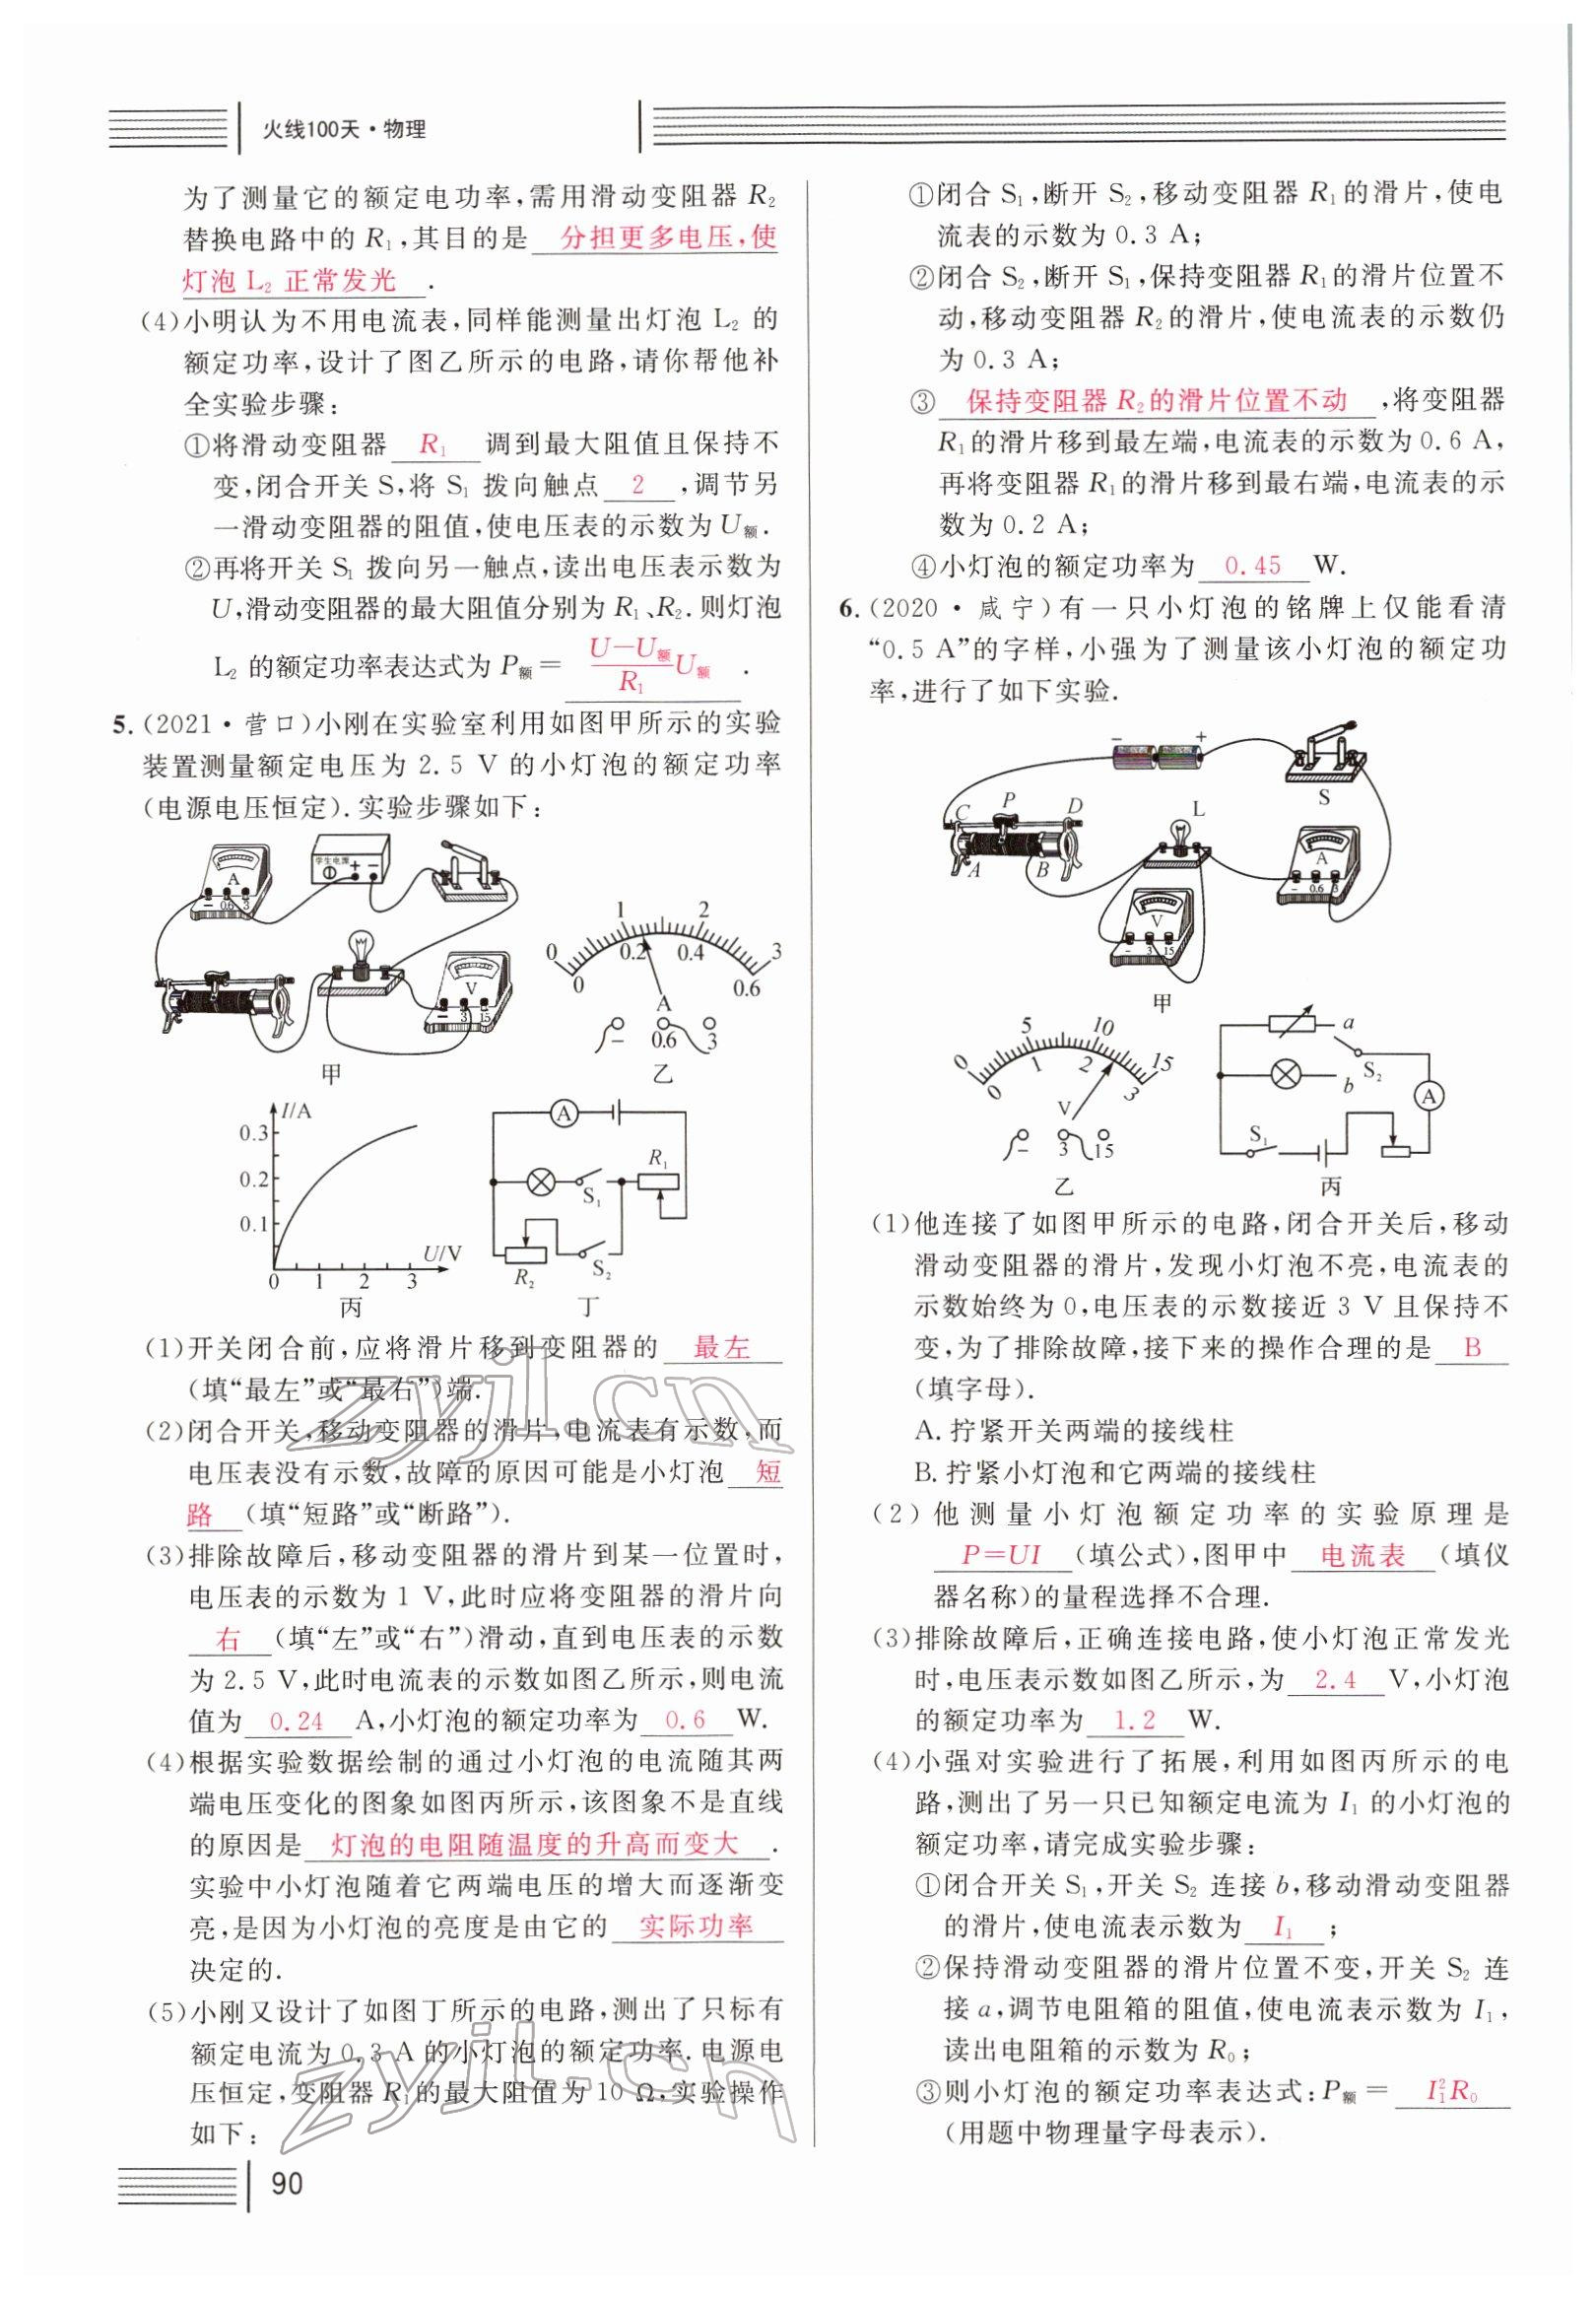 火线100天·物理
为了测量它的额定电功率，需用滑动变阻器 R₂
替换电路中的 R₁，其目的是 分担更多电压，使
灯泡 L₂ 正常发光 .
(4)小明认为不用电流表，同样能测量出灯泡 L₂ 的
额定功率，设计了图乙所示的电路，请你帮他补
全实验步骤：
①将滑动变阻器 R₁ 调到最大阻值且保持不
变，闭合开关 S，将 S₁ 拨向触点 2 ，调节另
一滑动变阻器的阻值，使电压表的示数为 U额.
②再将开关 S₁ 拨向另一触点，读出电压表示数为
U，滑动变阻器的最大阻值分别为 R₁、R₂. 则灯泡
L₂ 的额定功率表达式为 P额＝ (U－U额)/R₁ U额 .
5. (2021·营口)小刚在实验室利用如图甲所示的实验
装置测量额定电压为 2.5 V 的小灯泡的额定功率
(电源电压恒定). 实验步骤如下：
学生电源
＋ －
A
－ 0.6 3
V
－ 3 15
甲
0 1 2 3
0 0.2 0.4 0.6
A
－ 0.6 3
乙
I/A
0.3
0.2
0.1
U/V
0 1 2 3
丙
A
R₁
S₁
R₂ S₂
丁
(1)开关闭合前，应将滑片移到变阻器的 最左
(填“最左”或“最右”)端.
(2)闭合开关，移动变阻器的滑片，电流表有示数，而
电压表没有示数，故障的原因可能是小灯泡 短
路 (填“短路”或“断路”).
(3)排除故障后，移动变阻器的滑片到某一位置时，
电压表的示数为 1 V，此时应将变阻器的滑片向
右 (填“左”或“右”)滑动，直到电压表的示数
为 2.5 V，此时电流表的示数如图乙所示，则电流
值为 0.24 A，小灯泡的额定功率为 0.6 W.
(4)根据实验数据绘制的通过小灯泡的电流随其两
端电压变化的图象如图丙所示，该图象不是直线
的原因是 灯泡的电阻随温度的升高而变大 .
实验中小灯泡随着它两端电压的增大而逐渐变
亮，是因为小灯泡的亮度是由它的 实际功率
决定的.
(5)小刚又设计了如图丁所示的电路，测出了只标有
额定电流为 0.3 A 的小灯泡的额定功率. 电源电
压恒定，变阻器 R₁的最大阻值为 10 Ω，实验操作
如下：
①闭合 S₁，断开 S₂，移动变阻器 R₁的滑片，使电
流表的示数为 0.3 A；
②闭合 S₂，断开 S₁，保持变阻器 R₁的滑片位置不
动，移动变阻器 R₂的滑片，使电流表的示数仍
为 0.3 A；
③ 保持变阻器 R₂的滑片位置不动 ，将变阻器
R₁的滑片移到最左端，电流表的示数为 0.6 A，
再将变阻器 R₁的滑片移到最右端，电流表的示
数为 0.2 A；
④小灯泡的额定功率为 0.45 W.
6. (2020·咸宁)有一只小灯泡的铭牌上仅能看清
“0.5 A”的字样，小强为了测量该小灯泡的额定功
率，进行了如下实验.
－ ＋
S
C P D L
A B
A
－ 0.6 3
V
－ 3 15
甲
0 5 10 15
0 1 2 3
V
－ 3 15
乙
a
S₂
b
A
S₁
丙
(1)他连接了如图甲所示的电路，闭合开关后，移动
滑动变阻器的滑片，发现小灯泡不亮，电流表的
示数始终为 0，电压表的示数接近 3 V 且保持不
变，为了排除故障，接下来的操作合理的是 B
(填字母).
A. 拧紧开关两端的接线柱
B. 拧紧小灯泡和它两端的接线柱
(2)他测量小灯泡额定功率的实验原理是
P＝UI (填公式)，图甲中 电流表 (填仪
器名称)的量程选择不合理.
(3)排除故障后，正确连接电路，使小灯泡正常发光
时，电压表示数如图乙所示，为 2.4 V，小灯泡
的额定功率为 1.2 W.
(4)小强对实验进行了拓展，利用如图丙所示的电
路，测出了另一只已知额定电流为 I₁ 的小灯泡的
额定功率，请完成实验步骤：
①闭合开关 S₁，开关 S₂ 连接 b，移动滑动变阻器
的滑片，使电流表示数为 I₁ ；
②保持滑动变阻器的滑片位置不变，开关 S₂ 连
接 a，调节电阻箱的阻值，使电流表示数为 I₁，
读出电阻箱的示数为 R₀；
③则小灯泡的额定功率表达式：P额＝ I₁²R₀
(用题中物理量字母表示).
zyjl.cn
zyjl.cn
90